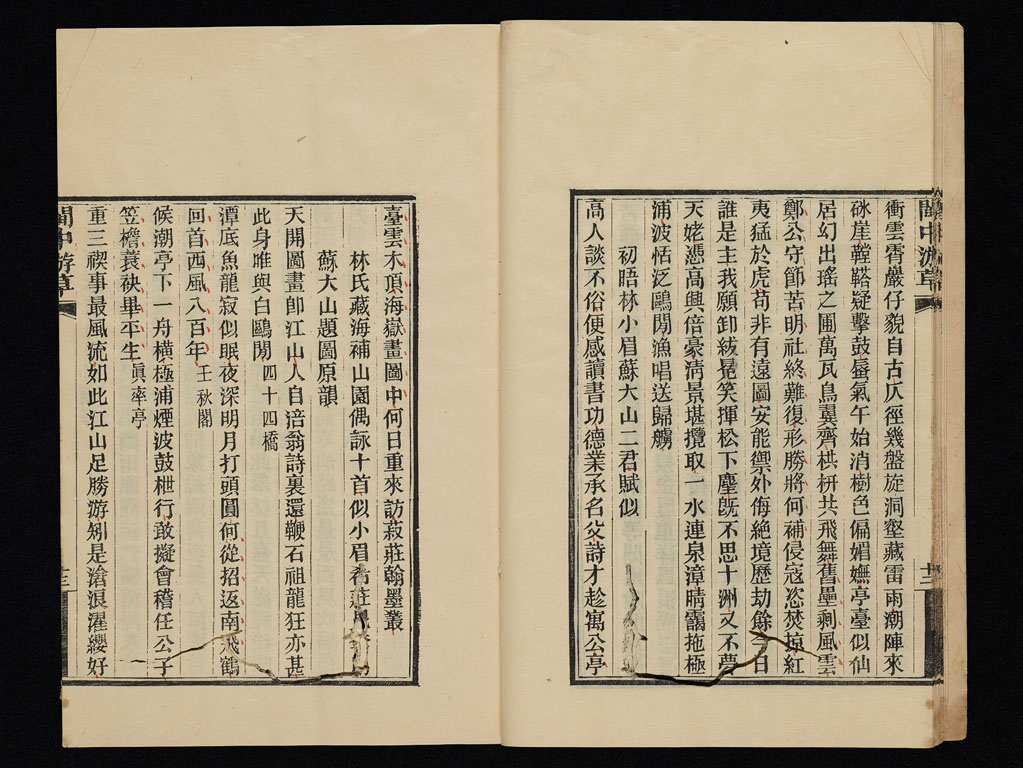 衝雲霄嚴仔貌自古仄徑幾盤旋洞壑藏雷雨潮陣來
砯崖鞺鞳疑擊鼓蜃氣午始消樹色偏媚嫵亭臺似仙
居幻出瑤之圃萬瓦鳥翼齊栱枅共飛舞舊壘剩風雲
鄭公守節苦明社終難復形勝將何補侵寇恣焚掠紅
夷猛於虎苟非有遠圖安能禦外侮絶境歷劫餘今日
誰是主我願卸紱冕笑揮松下麈旣不思十洲又不夢
天姥憑高興倍豪淸景堪攬取一水連泉漳晴靄拖極
浦波恬泛鷗閒漁唱送歸艣
初晤林小眉蘇大山二君賦似
高人談不俗便感讀書功德業承名父詩才趁寓公亭
臺雲木頂海嶽畫圖中何日重來訪菽莊翰墨叢
林氏藏海補山園偶詠十首似小眉菽莊
蘇大山題圖原韻
天開圖畫卽江山人自涪翁詩裏還鞭石祖龍狂亦甚
此身唯與白鷗閒四十四橋
潭底魚龍寂似眠夜深明月打頭圓何從招返南飛鶴
回首西風八百年壬秋閣
候潮亭下一舟橫極浦煙波鼓枻行敢擬會稽任公子
笠檐蓑袂畢平生眞率亭
重三禊事最風流如此江山足勝游矧是滄浪濯纓好
閩中游草
十二
閩中游草
十三